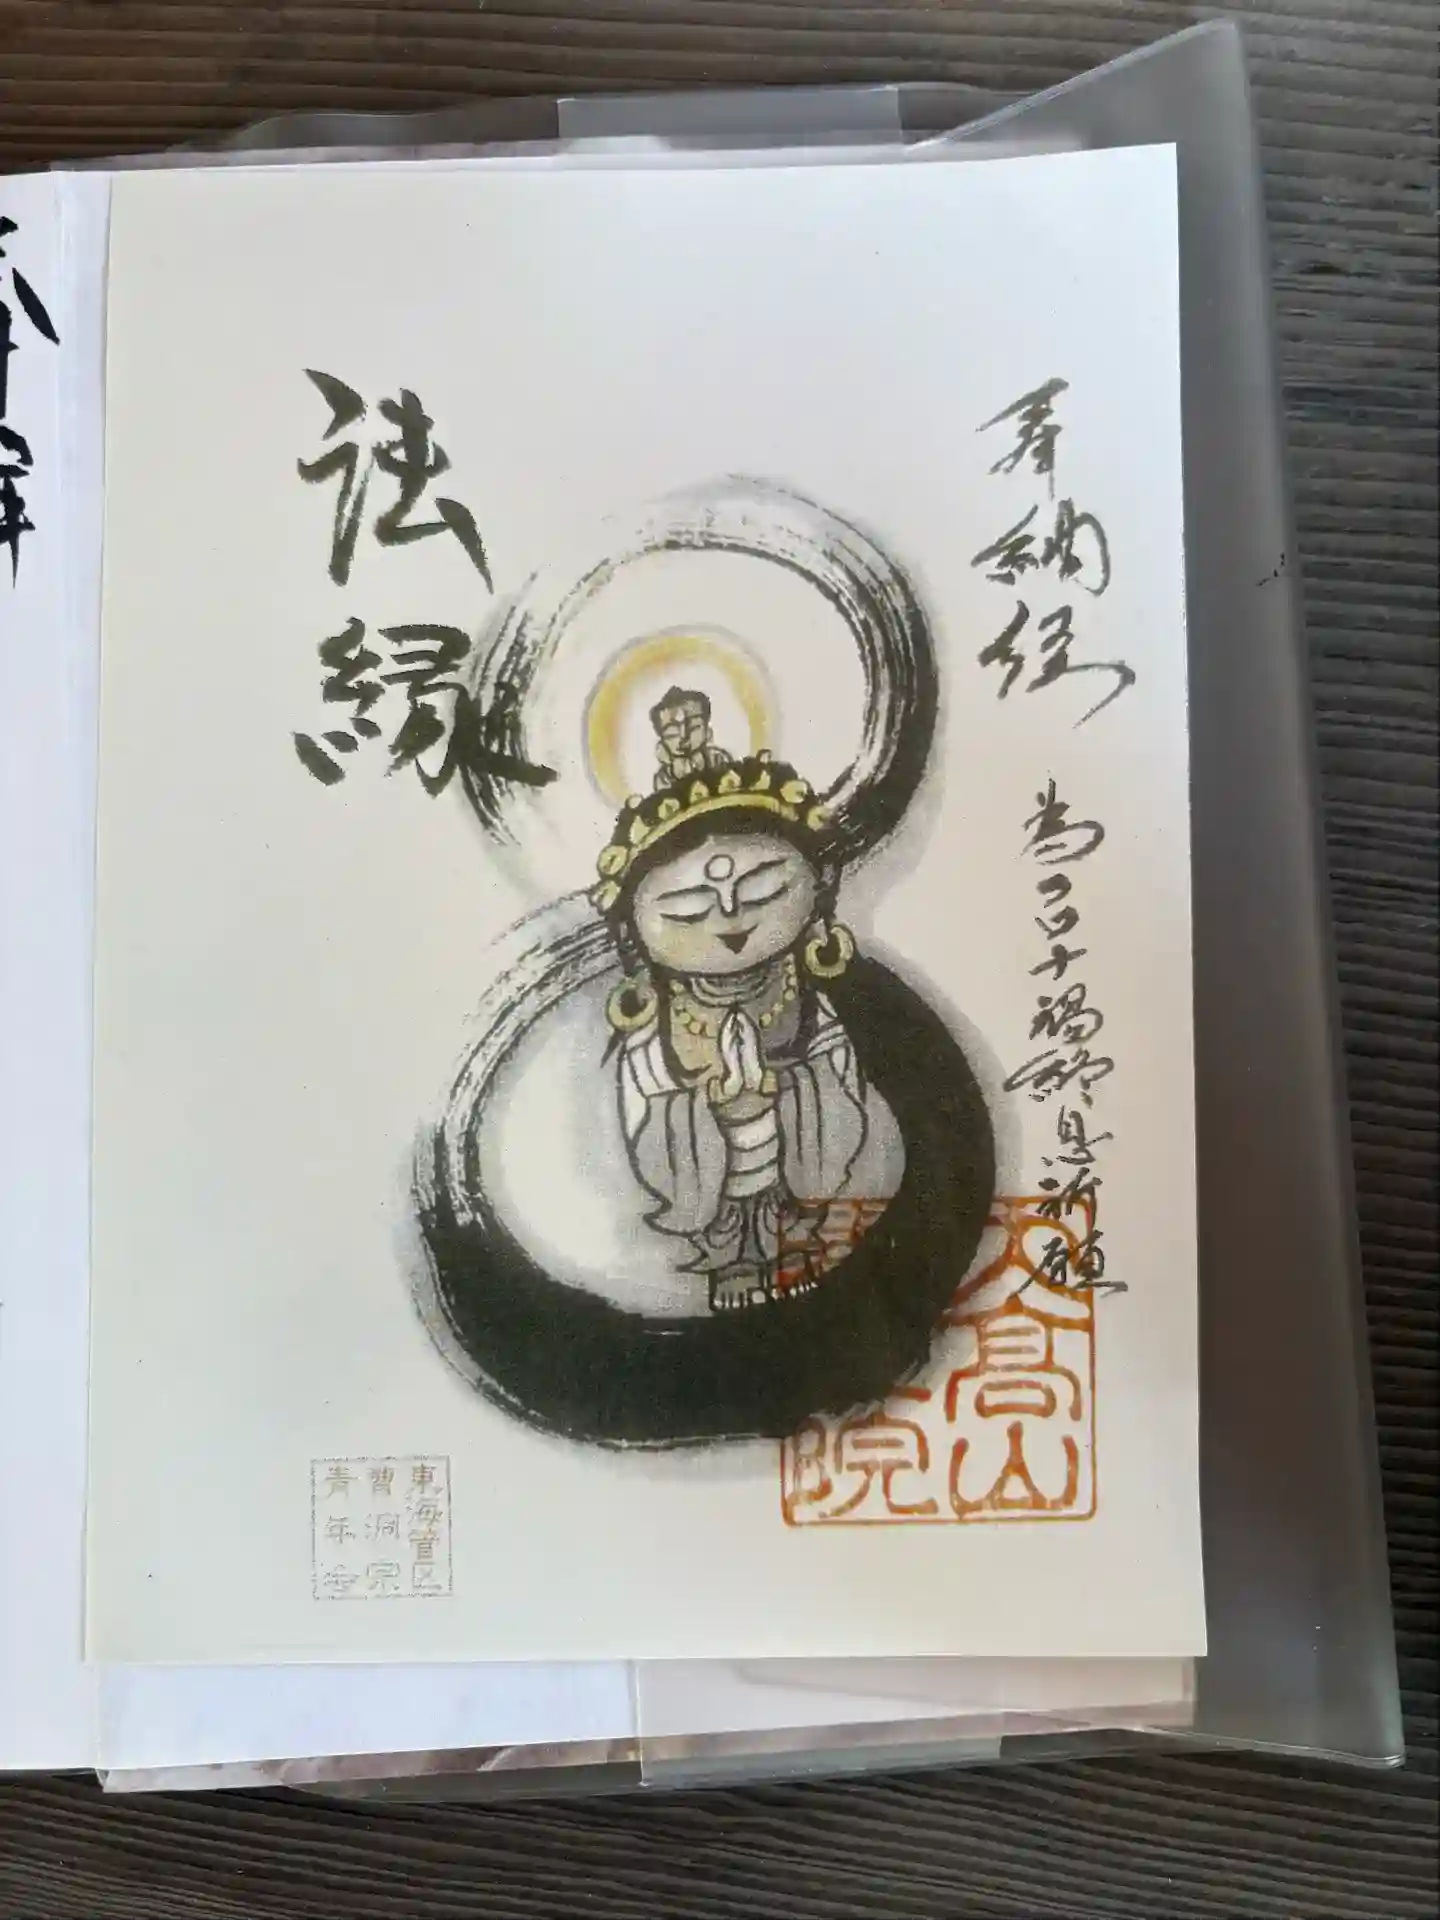 奉納経
為コロナ禍終息祈願
法縁
高山
院
東海管区
曹洞宗
青年会